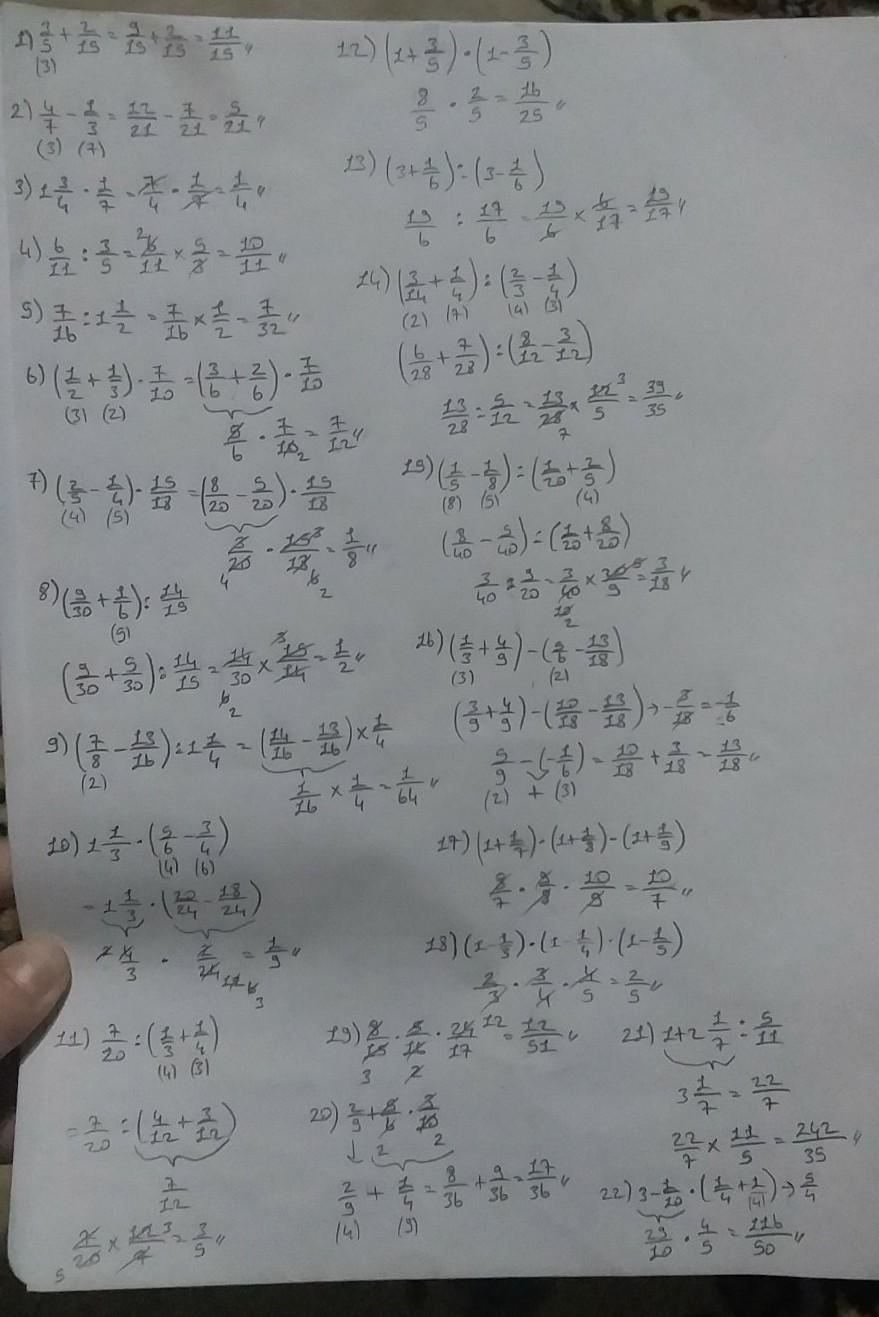 1) 3/5 + 2/15 = 9/15 + 2/15 = 11/15 //
(3)
2) 4/7 - 1/3 = 12/21 - 7/21 = 5/21 //
(3) (7)
3) 1 3/4 · 1/7 = 7/4 · 1/7 = 1/4 //
4) 6/11 : 3/5 = 6/11 × 5/3 = 10/11 //
2
5) 7/16 : 1 1/2 = 7/16 × 1/2 = 7/32 //
6) (1/2 + 1/3) · 7/10 = (3/6 + 2/6) · 7/10
(3) (2)
5/6 · 7/10 = 7/12 //
2
7) (2/5 - 1/4) · 15/18 = (8/20 - 5/20) · 15/18
(4) (5)
3/20 · 15/18 = 1/8 //
4 3 6 2
8) (9/30 + 1/6) : 14/15
(5)
(9/30 + 5/30) : 14/15 = 14/30 × 15/14 = 1/2 //
3 6 2
9) (7/8 - 13/16) : 1 1/4 = (14/16 - 13/16) × 1/4
(2)
1/16 × 1/4 = 1/64 //
10) 1 1/3 · (5/6 - 3/4)
(4) (6)
= 1 1/3 · (20/24 - 18/24)
4/3 · 2/24 = 1/9 //
2 12 6 3
11) 7/20 : (1/3 + 1/4)
(4) (3)
= 7/20 : (4/12 + 3/12)
7/12
7/20 × 12/7 = 3/5 //
5 3
12) (1 + 3/5) · (1 - 3/5)
8/5 · 2/5 = 16/25 //
13) (3 + 1/6) : (3 - 1/6)
19/6 : 17/6 = 19/6 × 6/17 = 19/17 //
14) (3/14 + 1/4) : (2/3 - 1/4)
(2) (7) (4) (3)
(6/28 + 7/28) : (8/12 - 3/12)
13/28 : 5/12 = 13/28 × 12/5 = 39/35 //
7 3
15) (1/5 - 1/8) : (1/20 + 2/5)
(8) (5) (4)
(8/40 - 5/40) : (1/20 + 8/20)
3/40 : 9/20 = 3/40 × 20/9 = 3/18 //
10 2 5
16) (1/3 + 4/9) - (5/6 - 13/18)
(3) (2)
(3/9 + 4/9) - (10/18 - 13/18) → - 3/18 = -1/6
5/9 - (-1/6) = 10/18 + 3/18 = 13/18 //
(2) + (3)
17) (1 + 1/7) · (1 + 1/8) · (1 + 1/9)
8/7 · 9/8 · 10/9 = 10/7 //
18) (1 - 1/3) · (1 - 1/4) · (1 - 1/5)
2/3 · 3/4 · 4/5 = 2/5 //
19) 8/15 · 5/16 · 24/17 = 12/51 //
3 2 12
20) 2/9 + 5/6 · 3/10
↓ 2 2
2/9 + 1/4 = 8/36 + 9/36 = 17/36 //
(4) (9)
21) 1 + 2 1/7 : 5/11
3 1/7 = 22/7
22/7 × 11/5 = 242/35 //
22) 3 - 1/10 · (1/4 + 1) → 5/4
(4)
29/10 · 4/5 = 116/50 //